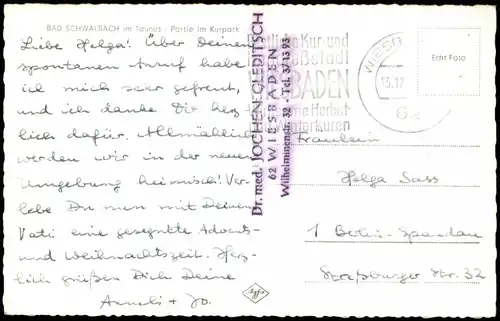 BAD SCHWALBACH im Taunus - Partie im Kurpark
Liebe Helga! Über Deinen
spontanen Anruf habe
ich mich sehr gefreut,
und ich danke Dir herz-
lich dafür. Allmählich
werden wir in der neuen
Umgebung heimisch! Ver-
lebe Du nun mit Deinem
Vati eine gesegnete Advents-
und Weihnachtszeit. Herz-
lich grüßen Dich Deine
Anneli + Jo.
Dr. med. JOCHEN GLEDITSCH
62 WIESBADEN
Wilhelminenstr. 32 - Tel. 371393
Kur- und
stadt
BADEN
Herbst
Winterkuren
WIESB
13.12
62
Echt Foto
Fräulein
Helga Sass
1 Berlin-Spandau
Straßburger Str. 32
Agfa